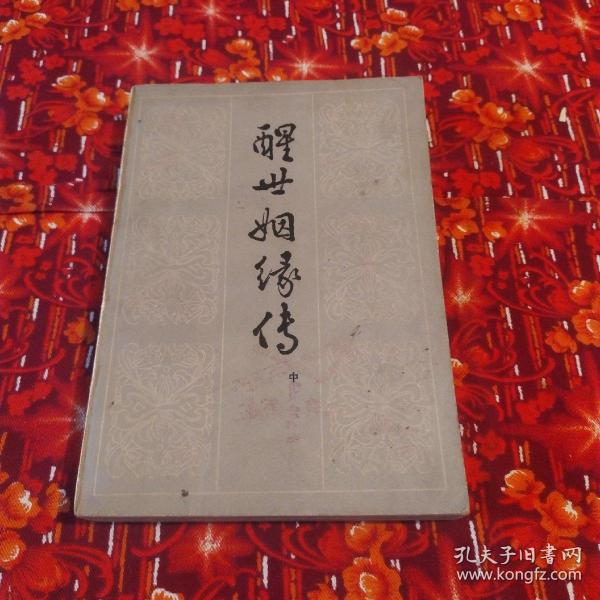 醒世姻缘传
中
孔夫子旧書网
www.kongfz.com